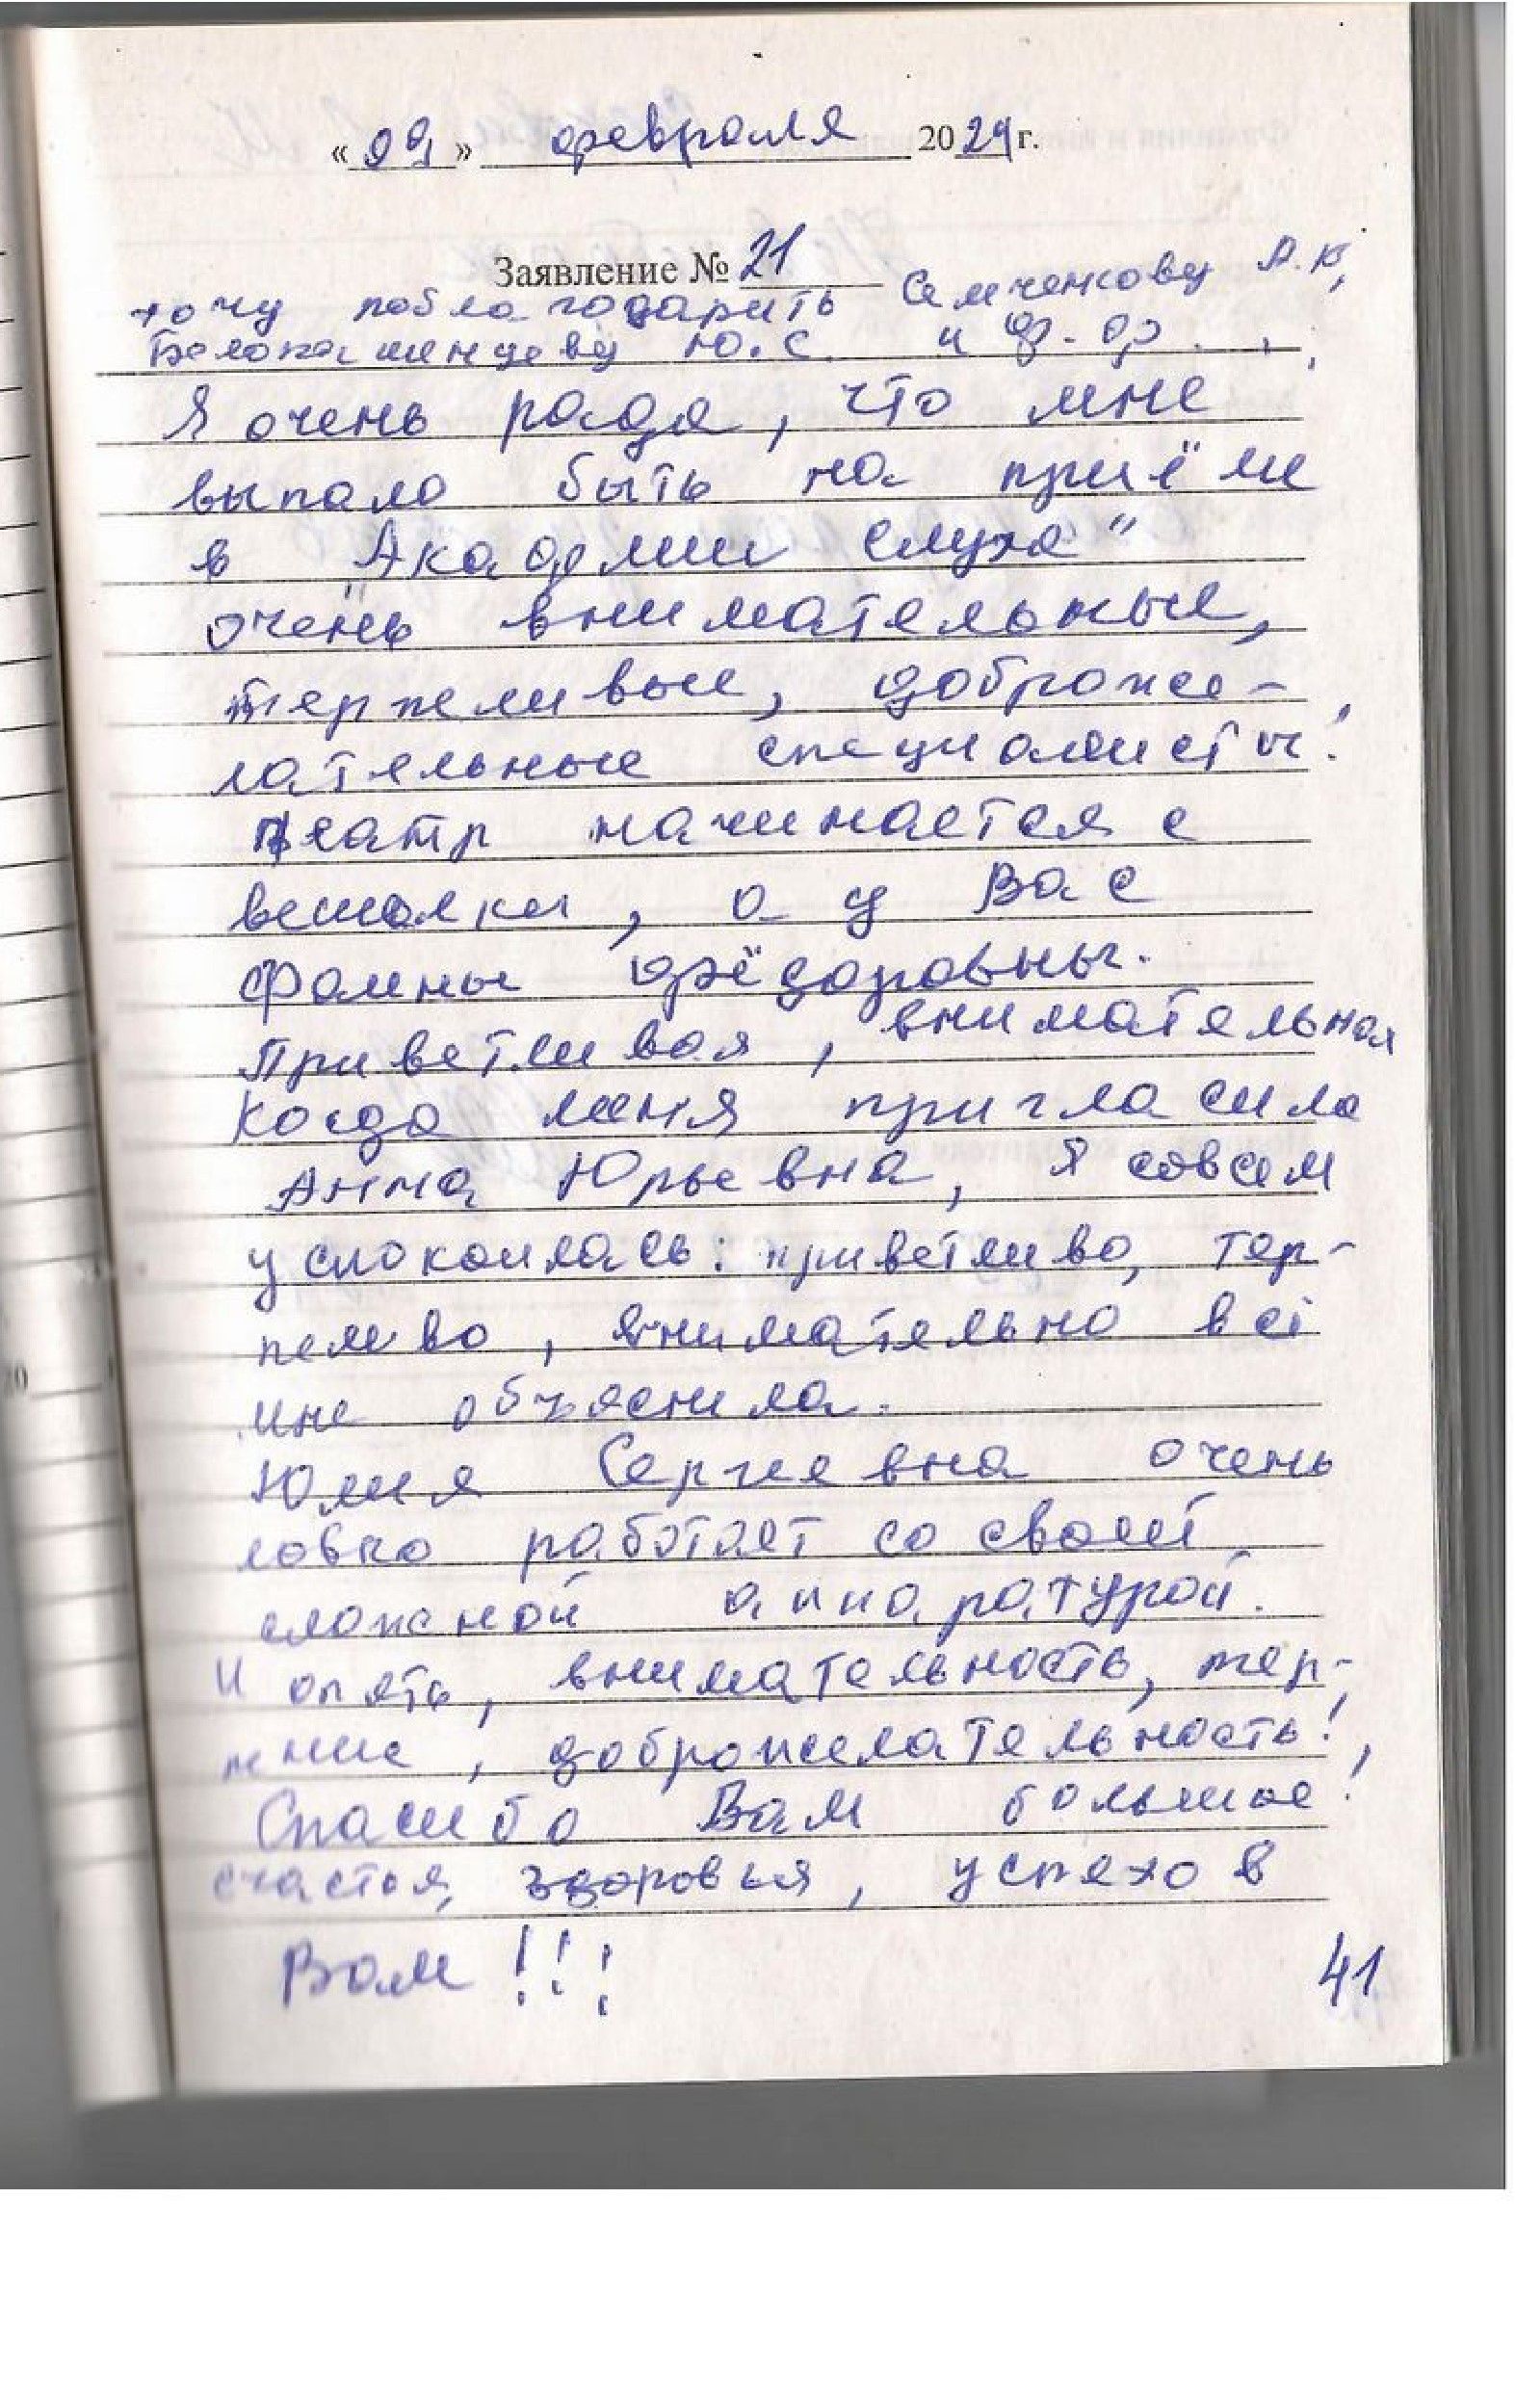 «09» февраля 2024 г.
Заявление № 21
хочу поблагодарить Семченкову А.К,
Белокаменцеву Ю.С. и Ф.Ф.
Я очень рада, что мне
выпало быть на приёме
в „Академии слуха"
очень внимательные,
терпеливые, доброже-
лательные специалисты!
Театр начинается с
вешалки, а у Вас
Фаины Фёдоровны.
Приветливая, внимательная
Когда меня пригласила
Анна Юрьевна, я совсем
успокоилась: приветливо, тер-
пеливо, внимательно всё
мне объяснила.
Юлия Сергеевна очень
ловко работает со своей
сложной аппаратурой.
И опять, внимательность, тер-
пение, доброжелательность!
Спасибо Вам большое!
счастья, здоровья, успехов
Вам!!!
41